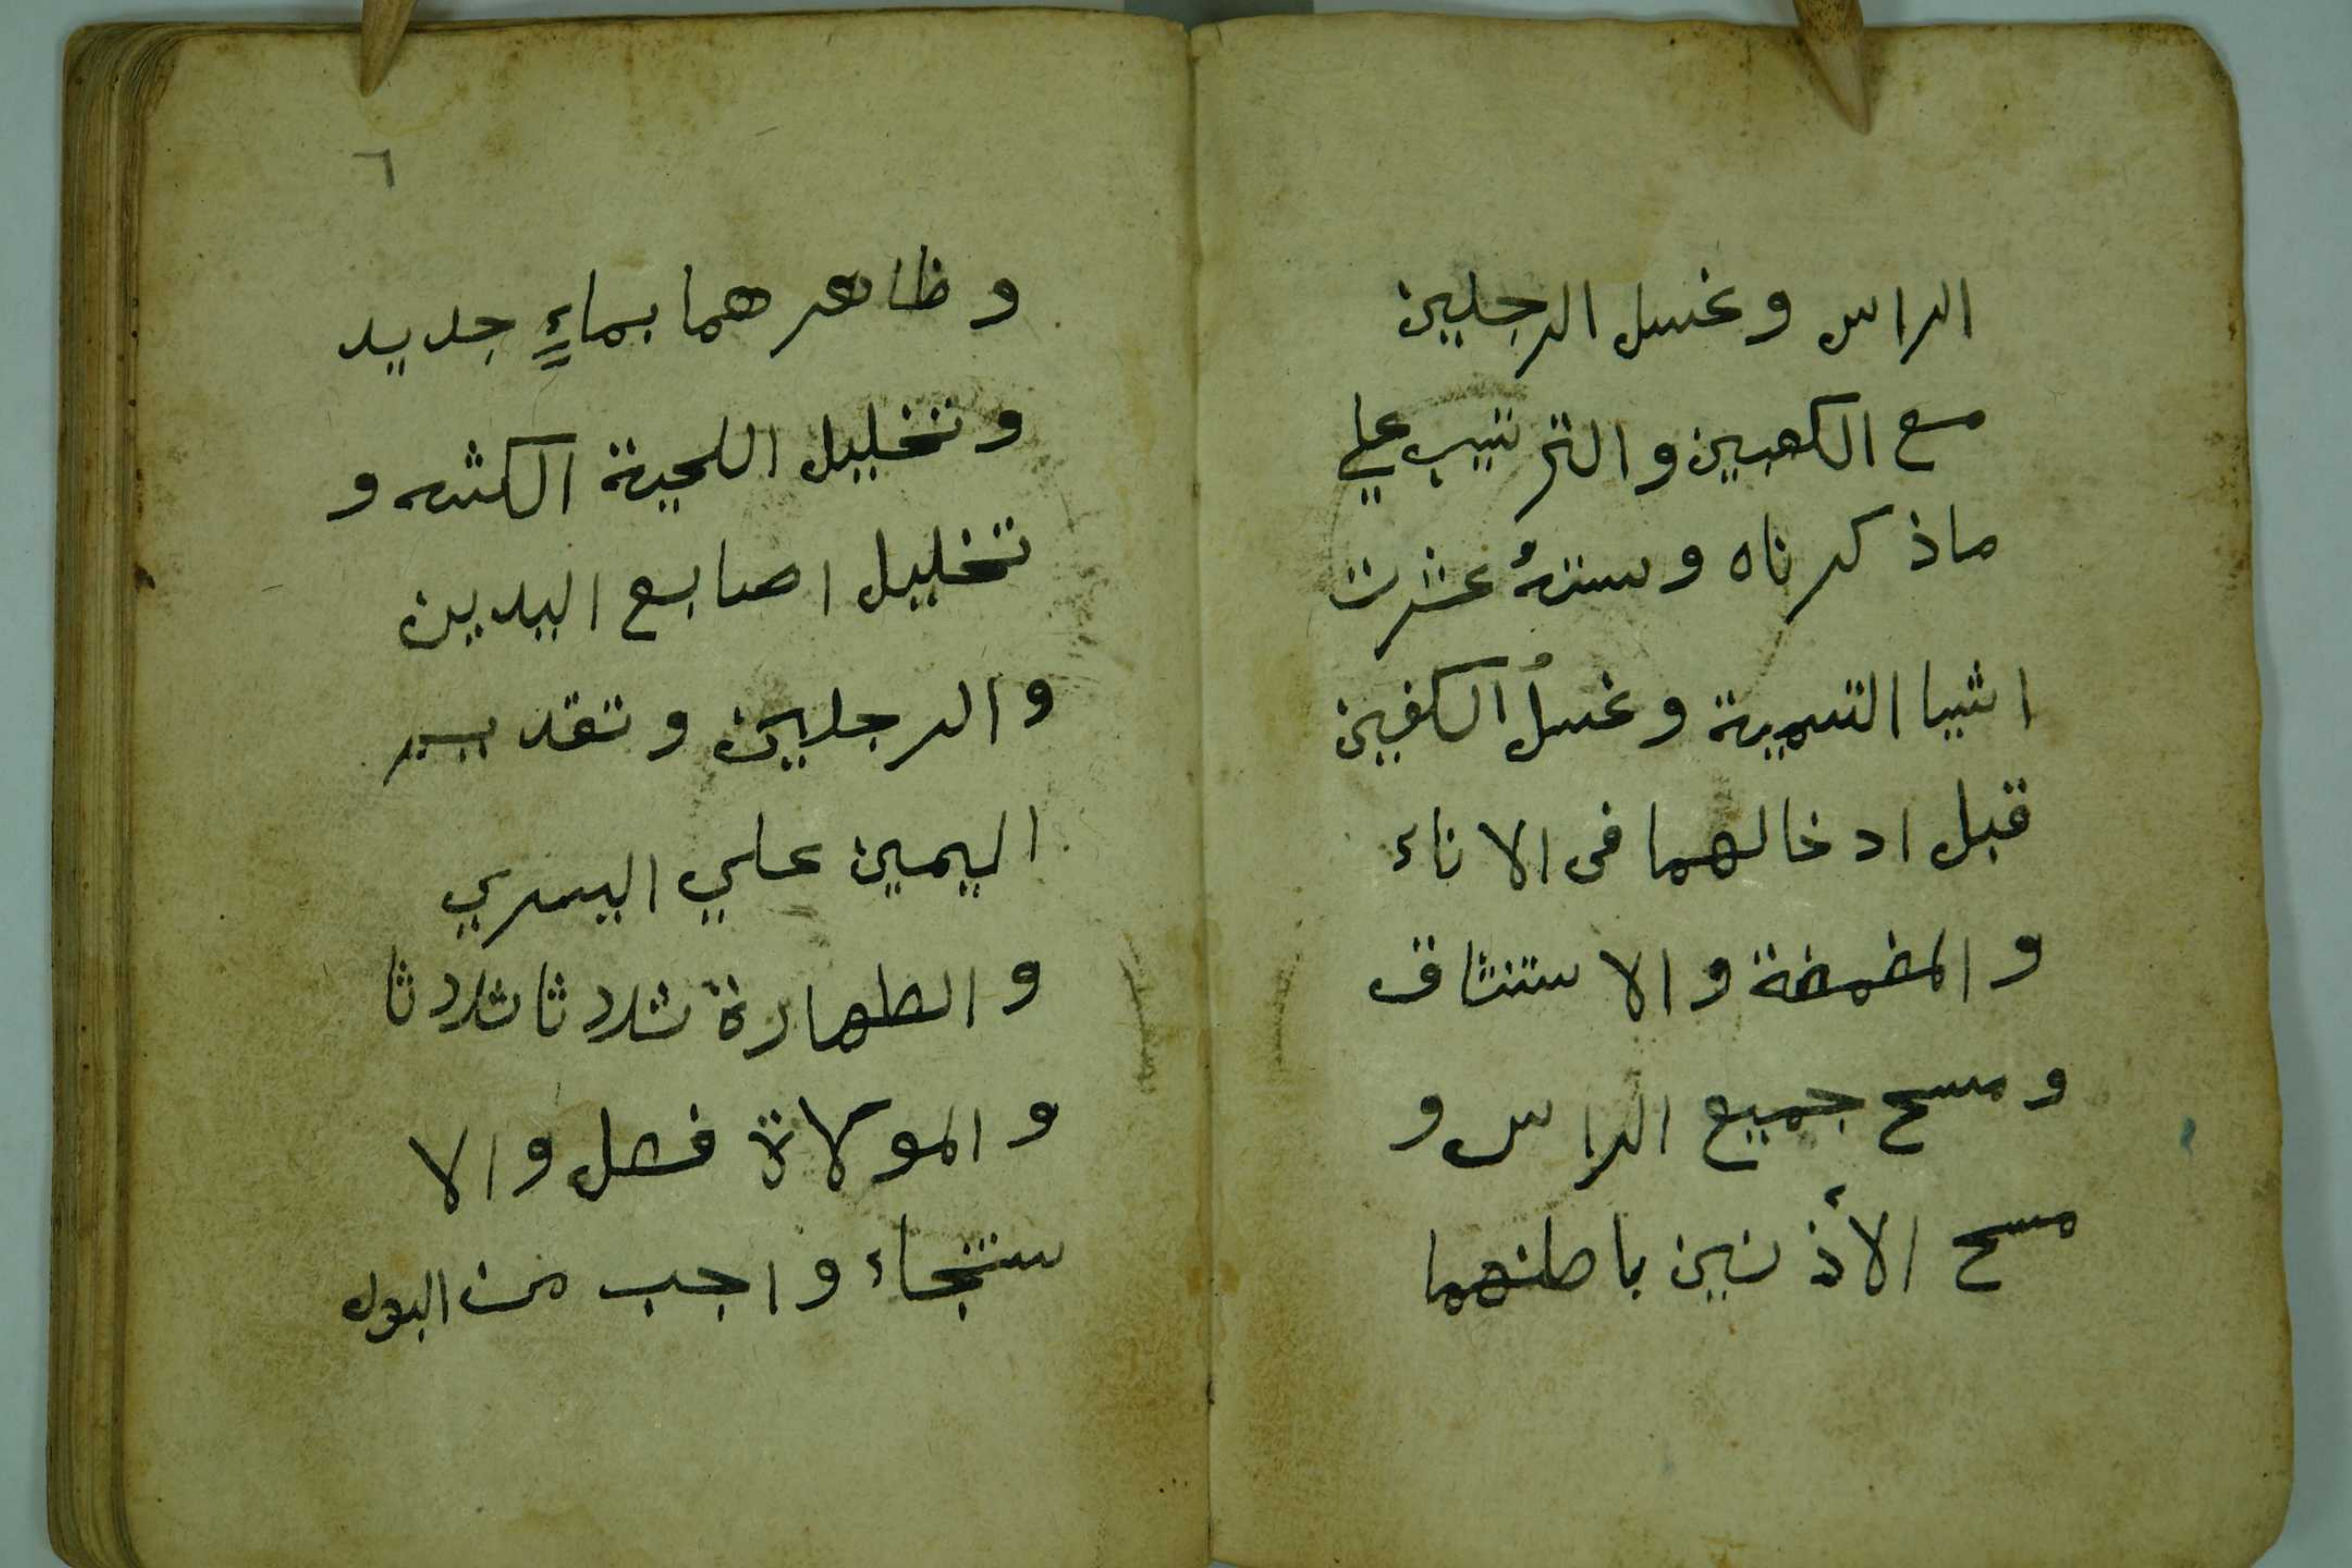 الراس وغسل الرجلين
مع الكعبين والترتيب علي
ماذكرناه وسننهُ عشرت
اشيا التسمية وغسلُ الكفين
قبل ادخالهما في الاناء
والمضمضة والاستنشاق
ومسح جميع الراس و
مسح الأذنين باطنهما
٦
وظاهرهما بماءٍ جديد
وتخليل اللحية الكثه و
تخليل اصابع اليدين
والرجلين وتقديم
اليمين علي اليسري
والطهارة ثلاثا ثلاثا
والمولاة فصل والا
ستنجاء واجب من البول